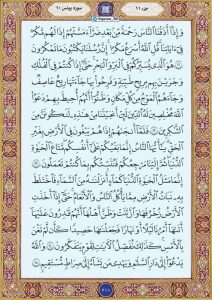 جزء ١١
سورة يونس ١٠
وَإِذَآ أَذَقْنَا ٱلنَّاسَ رَحْمَةً مِّنۢ بَعْدِ ضَرَّآءَ مَسَّتْهُمْ إِذَا لَهُم مَّكْرٌ
فِىٓ ءَايَاتِنَا قُلِ ٱللَّهُ أَسْرَعُ مَكْرًا إِنَّ رُسُلَنَا يَكْتُبُونَ مَا تَمْكُرُونَ
٢١ هُوَ ٱلَّذِى يُسَيِّرُكُمْ فِى ٱلْبَرِّ وَٱلْبَحْرِ حَتَّىٰٓ إِذَا كُنتُمْ فِى ٱلْفُلْكِ
وَجَرَيْنَ بِهِم بِرِيحٍ طَيِّبَةٍ وَفَرِحُوا۟ بِهَا جَآءَتْهَا رِيحٌ عَاصِفٌ
وَجَآءَهُمُ ٱلْمَوْجُ مِن كُلِّ مَكَانٍ وَظَنُّوٓا۟ أَنَّهُمْ أُحِيطَ بِهِمْ دَعَوُا۟
ٱللَّهَ مُخْلِصِينَ لَهُ ٱلدِّينَ لَئِنْ أَنجَيْتَنَا مِنْ هَٰذِهِۦ لَنَكُونَنَّ مِنَ
ٱلشَّٰكِرِينَ ٢٢ فَلَمَّآ أَنجَىٰهُمْ إِذَا هُمْ يَبْغُونَ فِى ٱلْأَرْضِ بِغَيْرِ ٱلْحَقِّ
يَٰٓأَيُّهَا ٱلنَّاسُ إِنَّمَا بَغْيُكُمْ عَلَىٰٓ أَنفُسِكُم مَّتَٰعَ ٱلْحَيَوٰةِ
ٱلدُّنْيَا ثُمَّ إِلَيْنَا مَرْجِعُكُمْ فَنُنَبِّئُكُم بِمَا كُنتُمْ تَعْمَلُونَ ٢٣
إِنَّمَا مَثَلُ ٱلْحَيَوٰةِ ٱلدُّنْيَا كَمَآءٍ أَنزَلْنَٰهُ مِنَ ٱلسَّمَآءِ فَٱخْتَلَطَ
بِهِۦ نَبَاتُ ٱلْأَرْضِ مِمَّا يَأْكُلُ ٱلنَّاسُ وَٱلْأَنْعَٰمُ حَتَّىٰٓ إِذَآ أَخَذَتِ
ٱلْأَرْضُ زُخْرُفَهَا وَٱزَّيَّنَتْ وَظَنَّ أَهْلُهَآ أَنَّهُمْ قَٰدِرُونَ عَلَيْهَآ
أَتَىٰهَآ أَمْرُنَا لَيْلًا أَوْ نَهَارًا فَجَعَلْنَٰهَا حَصِيدًا كَأَن لَّمْ تَغْنَ
بِٱلْأَمْسِ كَذَٰلِكَ نُفَصِّلُ ٱلْءَايَٰتِ لِقَوْمٍ يَتَفَكَّرُونَ ٢٤ وَٱللَّهُ
يَدْعُوٓا۟ إِلَىٰ دَارِ ٱلسَّلَٰمِ وَيَهْدِى مَن يَشَآءُ إِلَىٰ صِرَٰطٍ مُّسْتَقِيمٍ ٢٥
٢١١